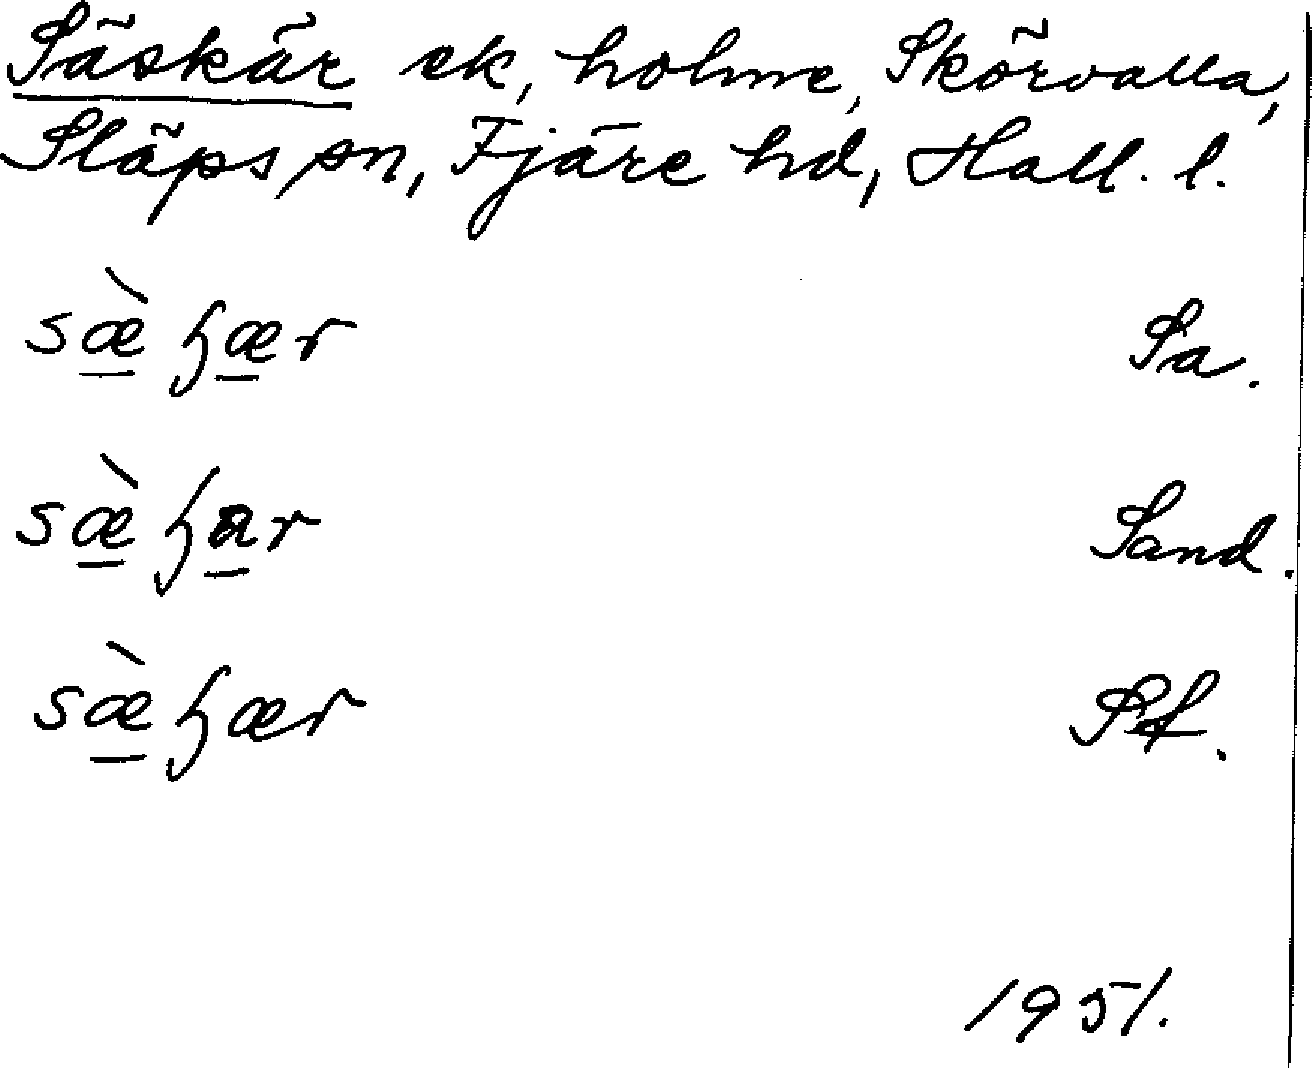 Säskär ek, holme, Skörvalla,
Släps sn, Fjäre hd, Hall. l.
sæ̱̀ ɧæ̱r Sa.
sæ̱̀ ɧa̱r Sand.
sæ̱̀ ɧær Pf.
1951.